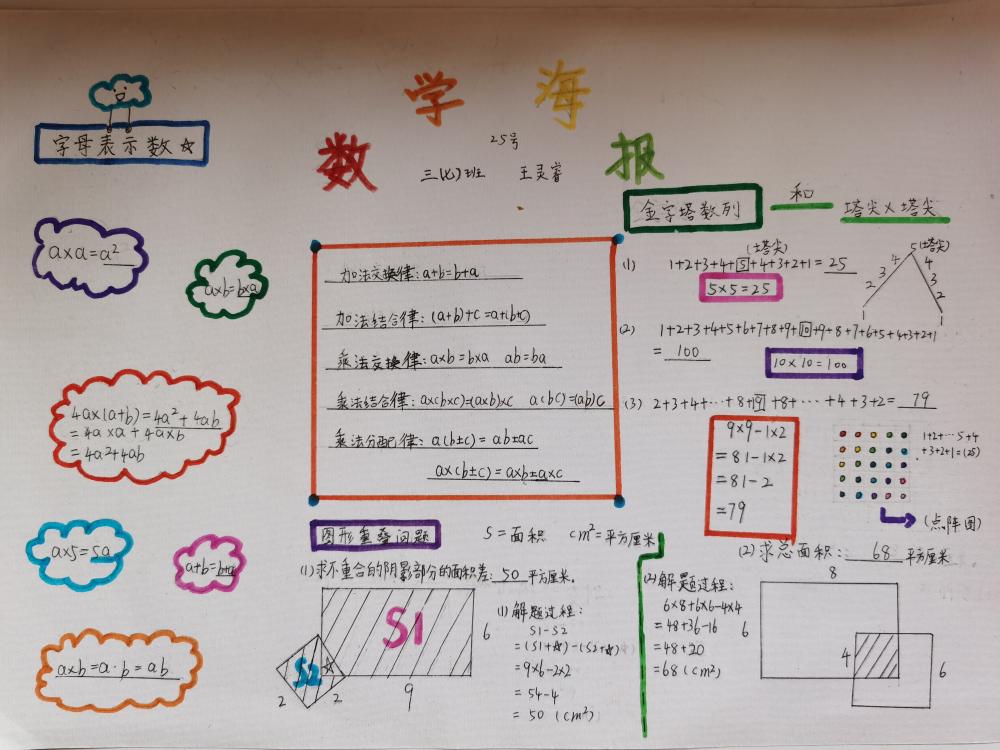 数学海报
25号
三(七)班 王灵睿
字母表示数☆
a×a=a²
a×b=b×a
4a×(a+b)=4a²+4ab
=4a×a+4a×b
=4a²+4ab
a×5=5a
a+b=b+a
a×b=a·b=ab
加法交换律:a+b=b+a
加法结合律:(a+b)+c=a+(b+c)
乘法交换律:a×b=b×a ab=ba
乘法结合律:a×(b×c)=(a×b)×c a(bc)=(ab)c
乘法分配律:a(b±c)=ab±ac
a×(b±c)=a×b±a×c
金字塔数列 和 塔尖×塔尖
(塔尖)
(1) 1+2+3+4+5+4+3+2+1=25
5×5=25
5(塔尖)
4 4
3 3
2 2
1 1
(2) 1+2+3+4+5+6+7+8+9+10+9+8+7+6+5+4+3+2+1
=100
10×10=100
(3) 2+3+4+…+8+9+8+…+4+3+2=79
9×9-1×2
=81-1×2
=81-2
=79
1+2+…5+4
+3+2+1=(25)
(点阵图)
图形重叠问题 S=面积 cm²=平方厘米
(1)求不重合的阴影部分的面积差:50平方厘米.
S1
S2
☆
6
9
2
2
(1)解题过程:
S1-S2
=(S1+☆)-(S2+☆)
=9×6-2×2
=54-4
=50(cm²)
(2)求总面积:68平方厘米
(2)解题过程:
6×8+6×6-4×4
=48+36-16
=48+20
=68(cm²)
8
6
4
6